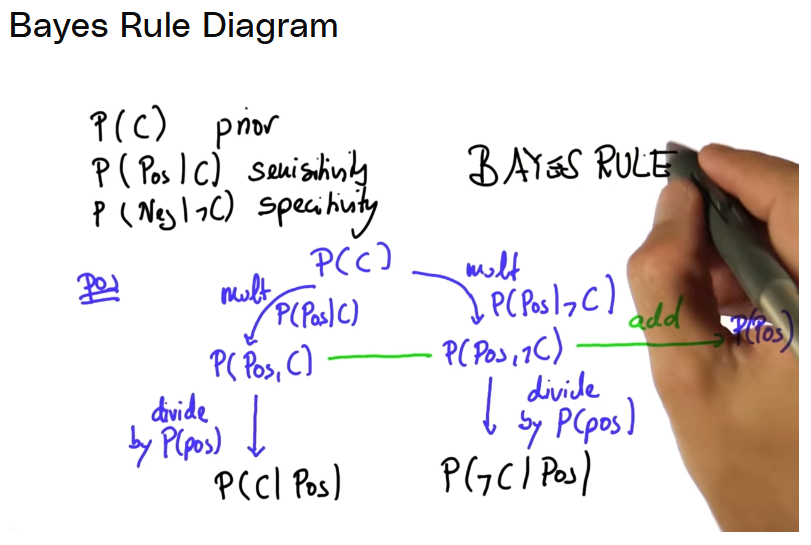 Bayes Rule Diagram
P(C) prior
P(Pos|C) sensitivity
P(Neg|¬C) specitivity
BAYES RULE
Pos
P(C)
mult
P(Pos|C)
mult
P(Pos|¬C)
add
P(Pos)
P(Pos,C)
P(Pos,¬C)
divide
by P(pos)
divide
by P(pos)
P(C|Pos)
P(¬C|Pos)